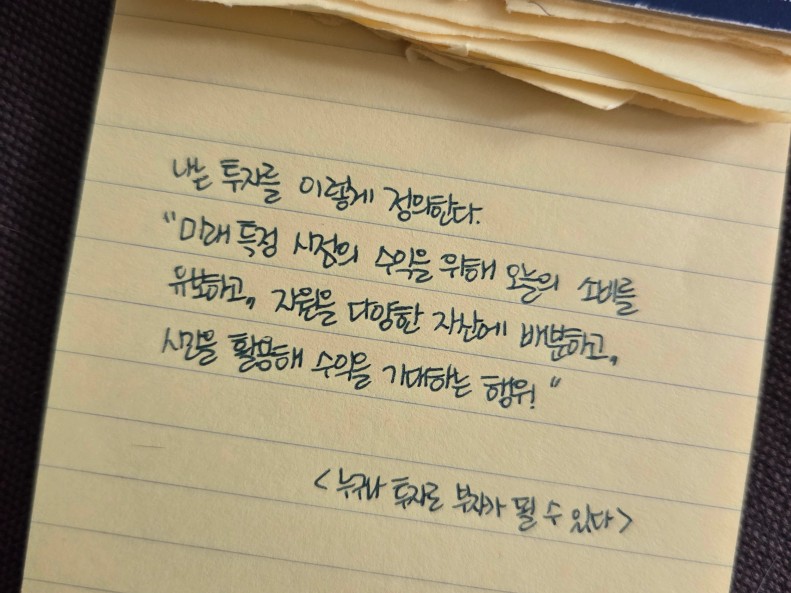 나는 투자를 이렇게 정의한다.
"미래 특정 시점의 수익을 위해 오늘의 소비를
유보하고, 자원을 다양한 자산에 배분하고,
시간을 활용해 수익을 기대하는 행위!"
<누구나 투자로 부자가 될 수 있다>